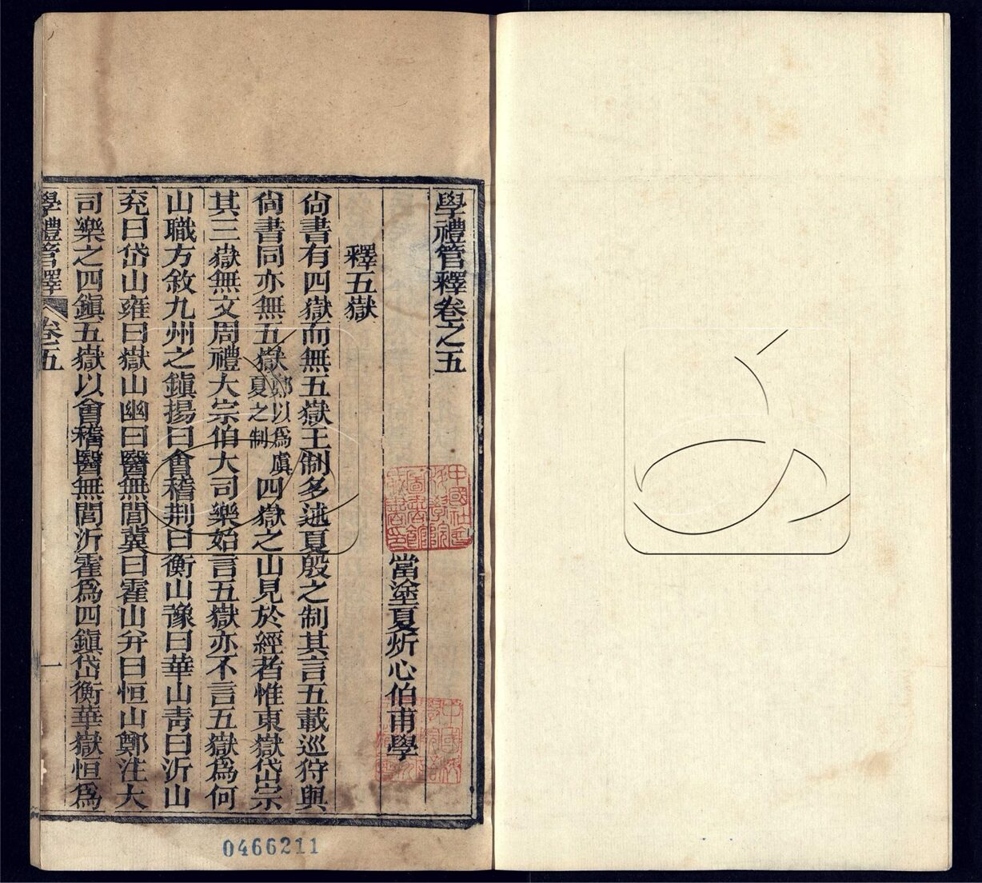 學禮管釋卷之五
當塗夏炘心伯甫學
釋五嶽
尙書有四嶽而無五嶽王制多述夏殷之制其言五載巡狩與
尙書同亦無五嶽鄭以爲虞夏之制四嶽之山見於經者惟東嶽岱宗
其三嶽無文周禮大宗伯大司樂始言五嶽亦不言五嶽爲何
山職方敘九州之鎭揚曰會稽荆曰衡山豫曰華山靑曰沂山
兖曰岱山雍曰嶽山幽曰醫無閭冀曰霍山幷曰恒山鄭注大
司樂之四鎭五嶽以會稽醫無閭沂霍爲四鎭岱衡華嶽恒爲
學禮管釋 卷五 一
0466211